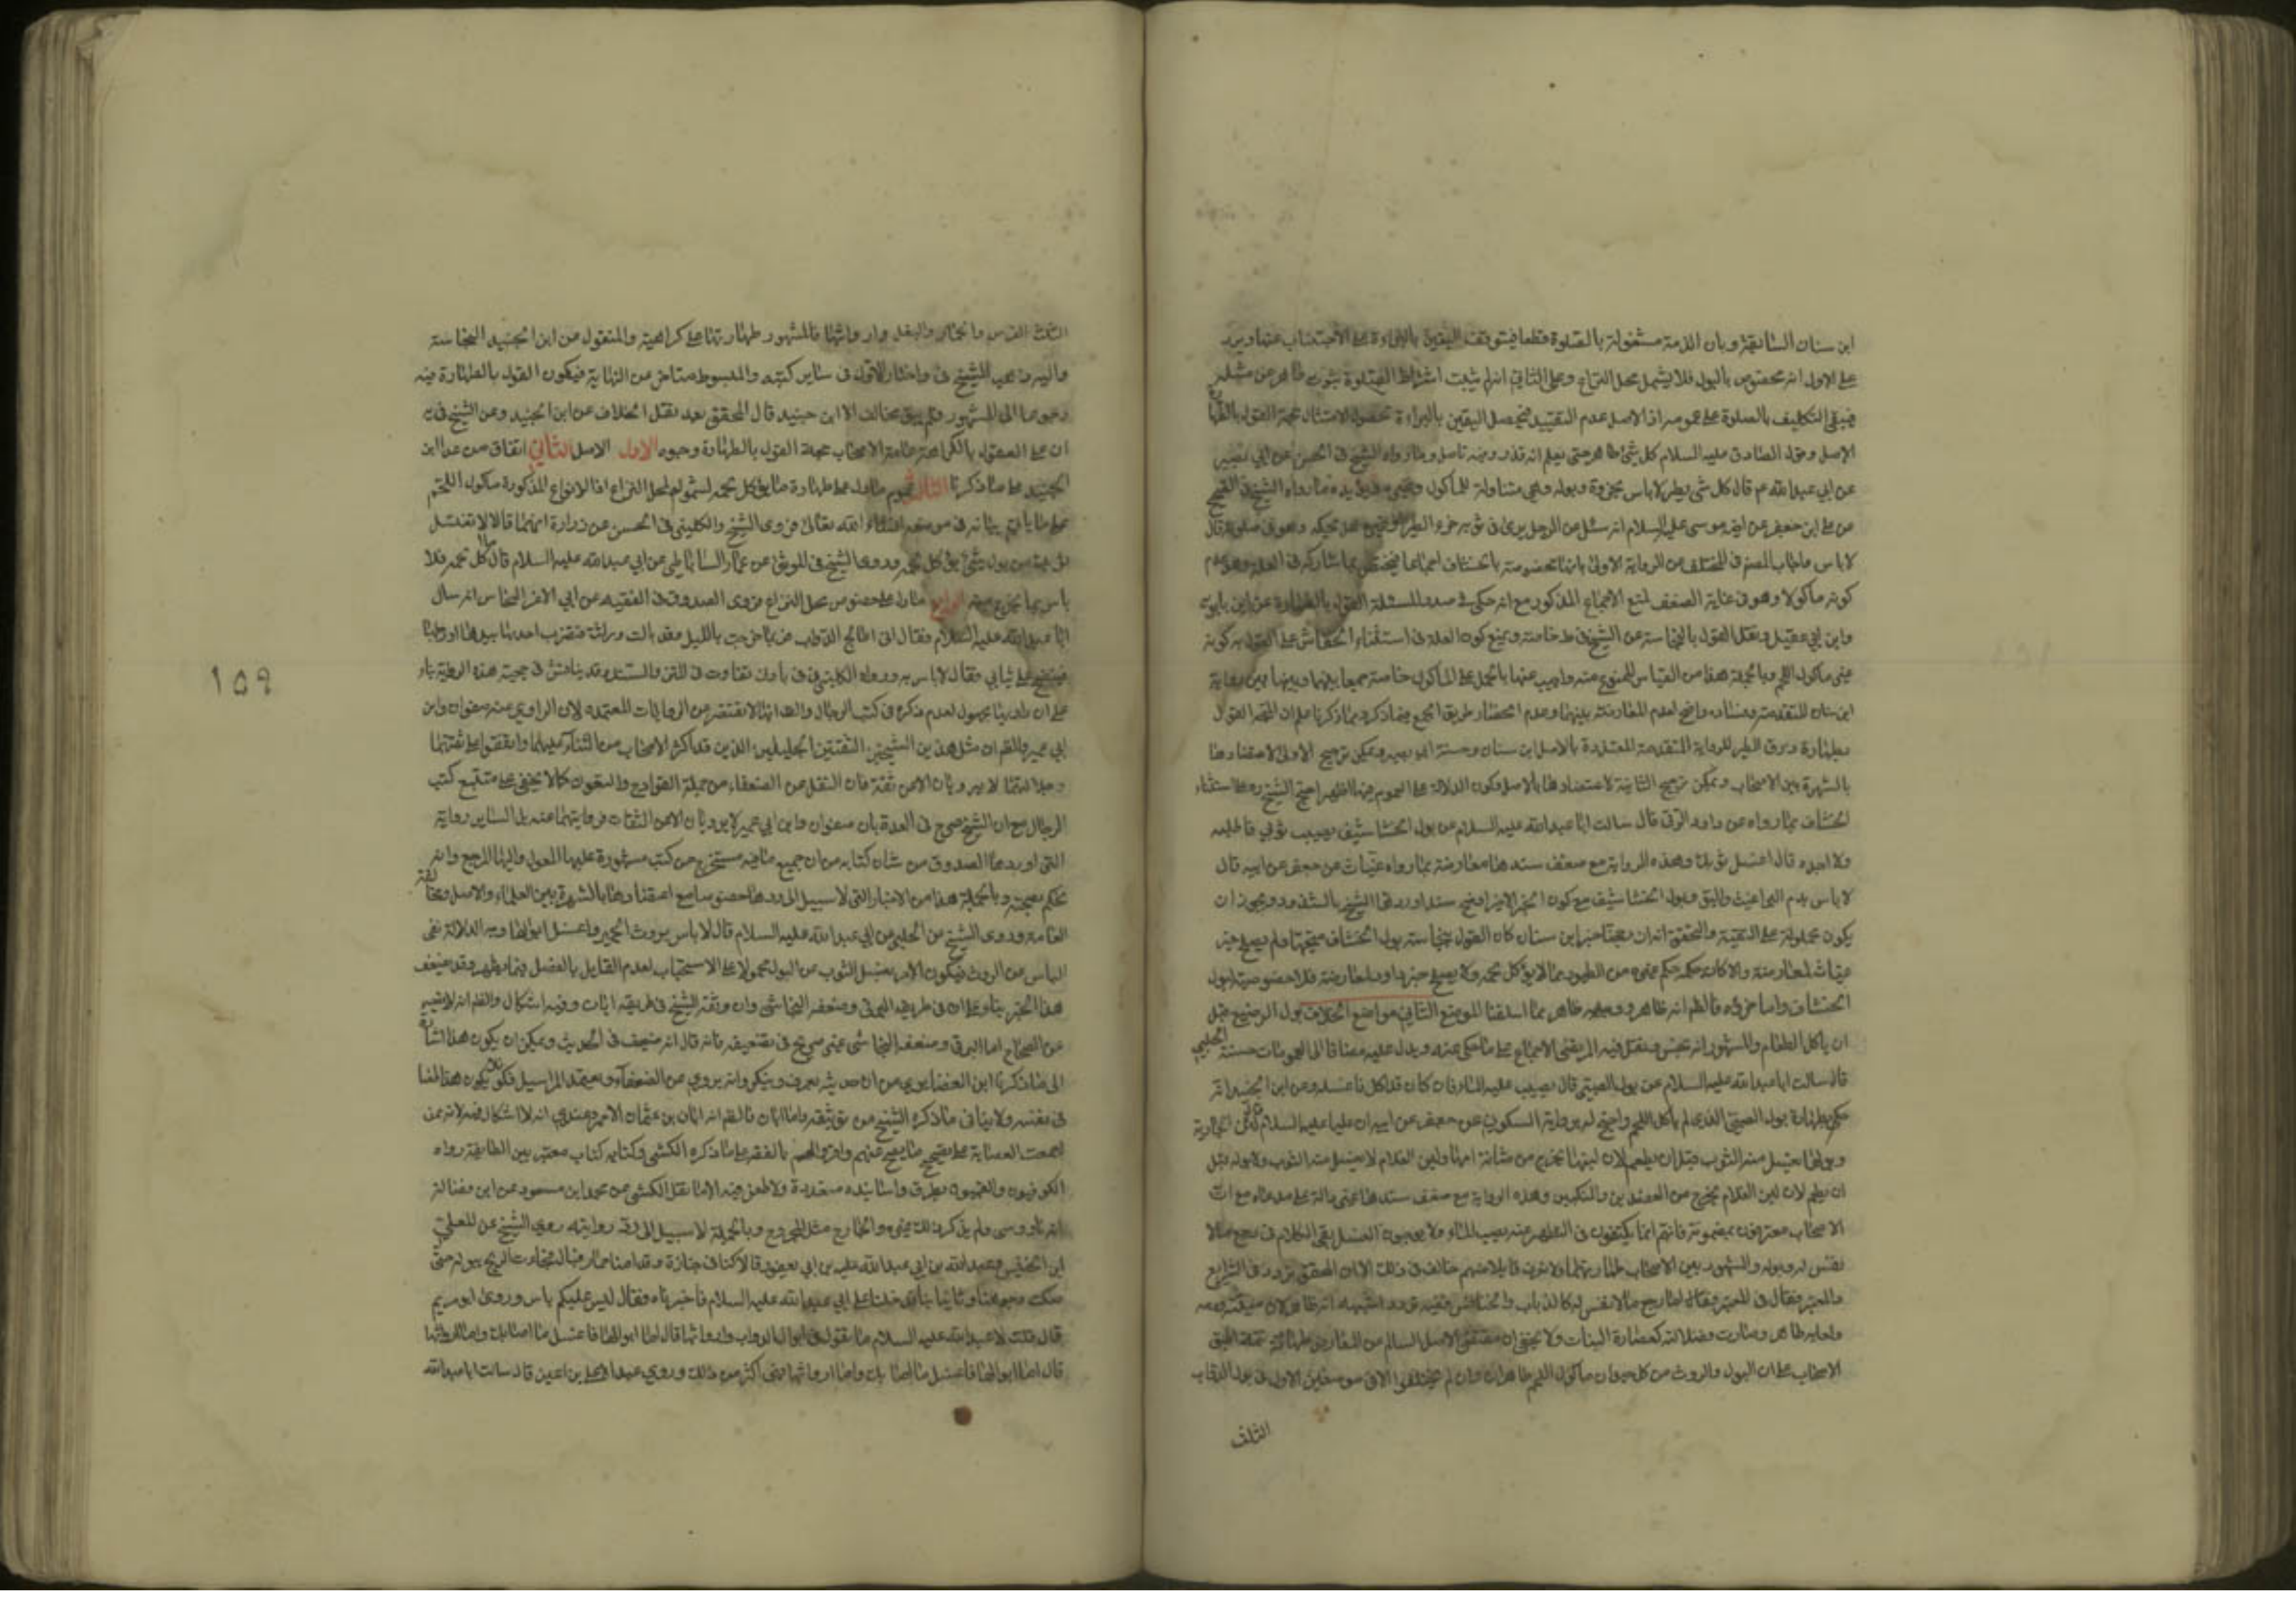 ابن سنان السابقة وبان الذمة مشغولة بالصلوة قطعا فيتوقف اليقين بالبراءة على الاجتناب عنها ويرد
على الاول انه مختص بالبول فلا يشمل محل النزاع وعلى الثاني انه لم يثبت اشتراط الصلوة بثوب طاهر عن مثله
فيبقى التكليف بالصلوة على عمومه اذ الاصل عدم التقييد فيحصل اليقين بالبراءة بحصول الامتثال حجة القول بالطهارة
الاصل وقول الصادق عليه السلام كل شئ طاهر حتى يعلم انه قذر وفيه تامل وما رواه الشيخ في الحسن عن ابي بصير
عن ابي عبدالله ع قال كل شئ يطير لا باس بخرؤه وبوله وهي متناولة للماكول وغيره ويؤيده ما رواه الشيخ في الصحيح
عن علي ابن جعفر عن اخيه موسى عليه السلام انه سئل عن الرجل يرى في ثوبه خرء الطير او غيره هل يحكه وهو في صلوته قال
لا باس واجاب المصنف في المختلف عن الرواية الاولى بانها مخصوصة بالخشاف اجماعا فيختص بما شاركه في العلة وهو عدم
كونه ماكولا وهو في غاية الضعف لمنع الاجماع المذكور مع انه حكى في صدر المسئلة القول بالطهارة عن ابن بابويه
وابن ابي عقيل ونقل القول بالنجاسة عن الشيخ في ط خاصة ويمنع كون العلة في استثناء الخشاف على القول به كونه
غير ماكول اللحم وبالجملة هذا من القياس الممنوع منه واجيب عنها بالحمل على الماكول خاصة جمعا بينها وبين رواية
ابن سنان المتقدمة وفساده واضح لعدم المعارضة بينهما وعدم انحصار طريق الجمع فيما ذكره بما ذكرنا علم ان المتجه القول
بطهارة ذرق الطير للرواية المتقدمة المعتضدة بالاصل ابن سنان وحسنة ابو بصير ويمكن ترجيح الاولى لاعتضادها
بالشهرة بين الاصحاب ويمكن ترجيح الثانية لاعتضادها بالاصل وكون الدلالة على العموم فيها اظهر احتج الشيخ ره على استثناء
الخشاف بما رواه عن داود الرقي قال سالت ابا عبدالله عليه السلام عن بول الخشاشيف يصيب ثوبي فاطلبه
ولا اجده قال اغسل ثوبك وهذه الرواية مع ضعف سندها معارضة بما رواه غياث عن جعفر عن ابيه قال
لا باس بدم البراغيث والبق وبول الخشاشيف مع كون الخبر الاخير اوضح سندا ورده الشيخ بالشذوذ ويجوز ان
يكون محمولة على التقية والتحقق انه ان صح خبر ابن سنان كان القول بنجاسة بول الخشاف متجها ولم يصلح خبر
غياث لمعارضته والا كان حكمه حكم غيره من الطيور مما لا يؤكل لحمه ولا يصلح خبر داود لمعارضة فلا خصوصية لبول
الخشاف واما خرؤه فالظم انه طاهر ووجهه ظاهر مما اسلفنا الموضع الثاني من مواضع الخلاف بول الرضيع قبل
ان ياكل الطعام والمشهور انه نجس ونقل فيه المرتضى الاجماع على ما حكي عنه ويدل عليه مضافا الى العمومات حسنة الحلبي
قال سالت ابا عبدالله عليه السلام عن بول الصبي قال يصيب عليه الماء فان كان قد اكل فاغسله وعن ابن الجنيد انه
حكم بطهارة بول الصبي الذي لم ياكل اللحم واحتج له برواية السكوني عن جعفر عن ابيه ان عليا عليه السلام قال لبن الجارية
وبولها يغسل منه الثوب قبل ان يطعم لان لبنها يخرج من مثانة امها ولبن الغلام لا يغسل منه الثوب ولا بوله قبل
ان يطعم لان لبن الغلام يخرج من العضدين والمنكبين وهذه الرواية مع ضعف سندها غير دالة على مدعاه مع ان
الاصحاب معترفون بمضمونه فانهم انما يكتفون في التطهير منه بصب الماء ولا يوجبون الغسل بقي الكلام في رجيع ما لا
نفس له وبوله والمشهور بين الاصحاب طهارتهما ولا نعرف قايلا منهم خالف في ذلك الا ان المحقق تردد في الشرايع
والمعتبر فقال في المعتبر وقال اما رجيع ما لا نفس له كالذباب والخنافس ففيه تردد اشبهه انه طاهر لان ميتته ودمه
ولعابه طاهر وصارت فضلاته كعصارة النبات ولا يخفى ان مقتضى الاصل السالم عن المعارض طهارته تتمة اطبق
الاصحاب على ان البول والروث من كل حيوان ماكول اللحم طاهران وان لم يختلفوا الا في موضعين الاول في بول الدواب
الثلث
الثلث الفرس والحمار والبغل وارواثها فالمشهور طهارتها على كراهية والمنقول من ابن الجنيد النجاسة
واليه ذهب الشيخ في واختار الاول في ساير كتبه والمبسوط متاخر عن النهاية فيكون القول بالطهارة فيه
رجوعا الى المشهور فلم يبق مخالف الا ابن جنيد قال المحقق بعد نقل الخلاف عن ابن الجنيد وعن الشيخ في يه
ان على القول بالكراهة عامة الاصحاب حجة القول بالطهارة وجوه الاول الاصل الثاني اتفاق من عدا ابن
الجنيد على ما ذكرنا الثالث عموم ما دل على طهارة ما يؤكل لحمه لشموله لمحل النزاع اذ الانواع المذكورة ماكول اللحم
على ما ياتي بيانه في موضعه انشاء الله تعالى فروى الشيخ والكليني في الحسن عن زرارة انهما قالا لا تغسل
ثوبك من بول شئ يؤكل لحمه وروى الشيخ في الموثق عن عمار الساباطي عن ابي عبدالله عليه السلام قال كل ما اكل لحمه فلا
باس بما يخرج منه الرابع ما دل على خصوص محل النزاع فروى الصدوق في الفقيه عن ابي الاغر النحاس انه سال
ابا عبدالله عليه السلام فقال اني اعالج الدواب فربما خرجت بالليل وقد بالت وراثت فتضرب احدها بيدها او رجلها
فينضح على ثيابي فقال لا باس به ورواه الكليني في في بادنى تفاوت في المتن والسند وقد يناقش في حجية هذه الرواية بناء
على ان راويها مجهول لعدم ذكره في كتب الرجال والحق انها لا تقصر عن الروايات المعتمدة لان الراوي عنه صفوان وابن
ابي عمير والظم ان مثل هذين الشيخين الثقتين الجليلين الذين قد اكثر الاصحاب من الثناء عليهما واتفقوا على ثقتهما
وجلالتهما لا يرويان الا عن ثقة فان النقل عن الضعفاء من جملة القوادح والطعون كما لا يخفى على متتبع كتب
الرجال مع ان الشيخ صرح في العدة بان صفوان وابن ابي عمير لا يرويان الا عن الثقات فروايتهما عنه بل الساير رواية
التي اوردها الصدوق من شان كتابه من ان جميع ما فيه مستخرج من كتب مشهورة عليها المعول واليها المرجع وانه
يحكم بصحته وبالجملة هذا من الاخبار التي لا سبيل الى ردها خصوصا مع اعتضادها بالشهرة بين العلماء والاصل ومخالفة
العامة وروى الشيخ عن الحلبي عن ابي عبدالله عليه السلام قال لا باس بروث الحمير واغسل ابوالها وجه الدلالة نفي
الباس عن الروث فيكون الامر بغسل الثوب من البول محمولا على الاستحباب لعدم القايل بالفصل فيما يظهر وقد يضعف
هذا الخبر بناء على ان في طريقه البرقي وضعفه النجاشي وان وثقه الشيخ في طريقه ابان وفيه اشكال والظم انه لا يقصر
عن الصحاح اما البرقي وضعف النجاشي غير صريح في تضعيفه فانه قال انه ضعيف في الحديث ويمكن ان يكون هذا اشارة
الى ما ذكرنا ابن الغضايري من ان حديثه يعرف وينكر وانه يروي عن الضعفاء ويعتمد المراسيل فلا يكون هذا طعنا
في نفسه ولا ينافي ما ذكره الشيخ من توثيقه واما ابان فالظم انه ابان بن عثمان الاحمر وعندي انه لا اشكال فيه لانه ممن
اجمعت العصابة على تصحيح ما يصح عنهم واقروا لهم بالفقه على ما ذكره الكشي وكتابه كتاب معتبر بين الطائفة رواه
الكوفيون والقميون بطرق واسانيد متعددة ولا طعن فيه الا ما نقل الكشي عن محمد ابن مسعود عن ابن فضال انه
انه ناووسي ولم يذكر ذلك غيره والجارح مثل المجروح وبالجملة لا سبيل الى رد روايته روى الشيخ عن المعلى
ابن الخنيس وعبدالله بن ابي يعفور قالا كنا في جنازة وقدامنا حمار فبال فجاءت الريح ببوله حتى
صكت وجوهنا وثيابنا فدخلنا على ابي عبدالله عليه السلام فاخبرناه فقال ليس عليكم باس وروى ابو مريم
قال قلت لابي عبدالله عليه السلام ما تقول في ابوال الدواب وارواثها قال اما ابوالها فاغسل ما اصابك واما ارواثها
قال اما ابوالها فاغسل ما اصابك واما ارواثها فهي اكثر من ذلك وروى عبد الاعلى بن اعين قال سالت ابا عبدالله
١٥٩